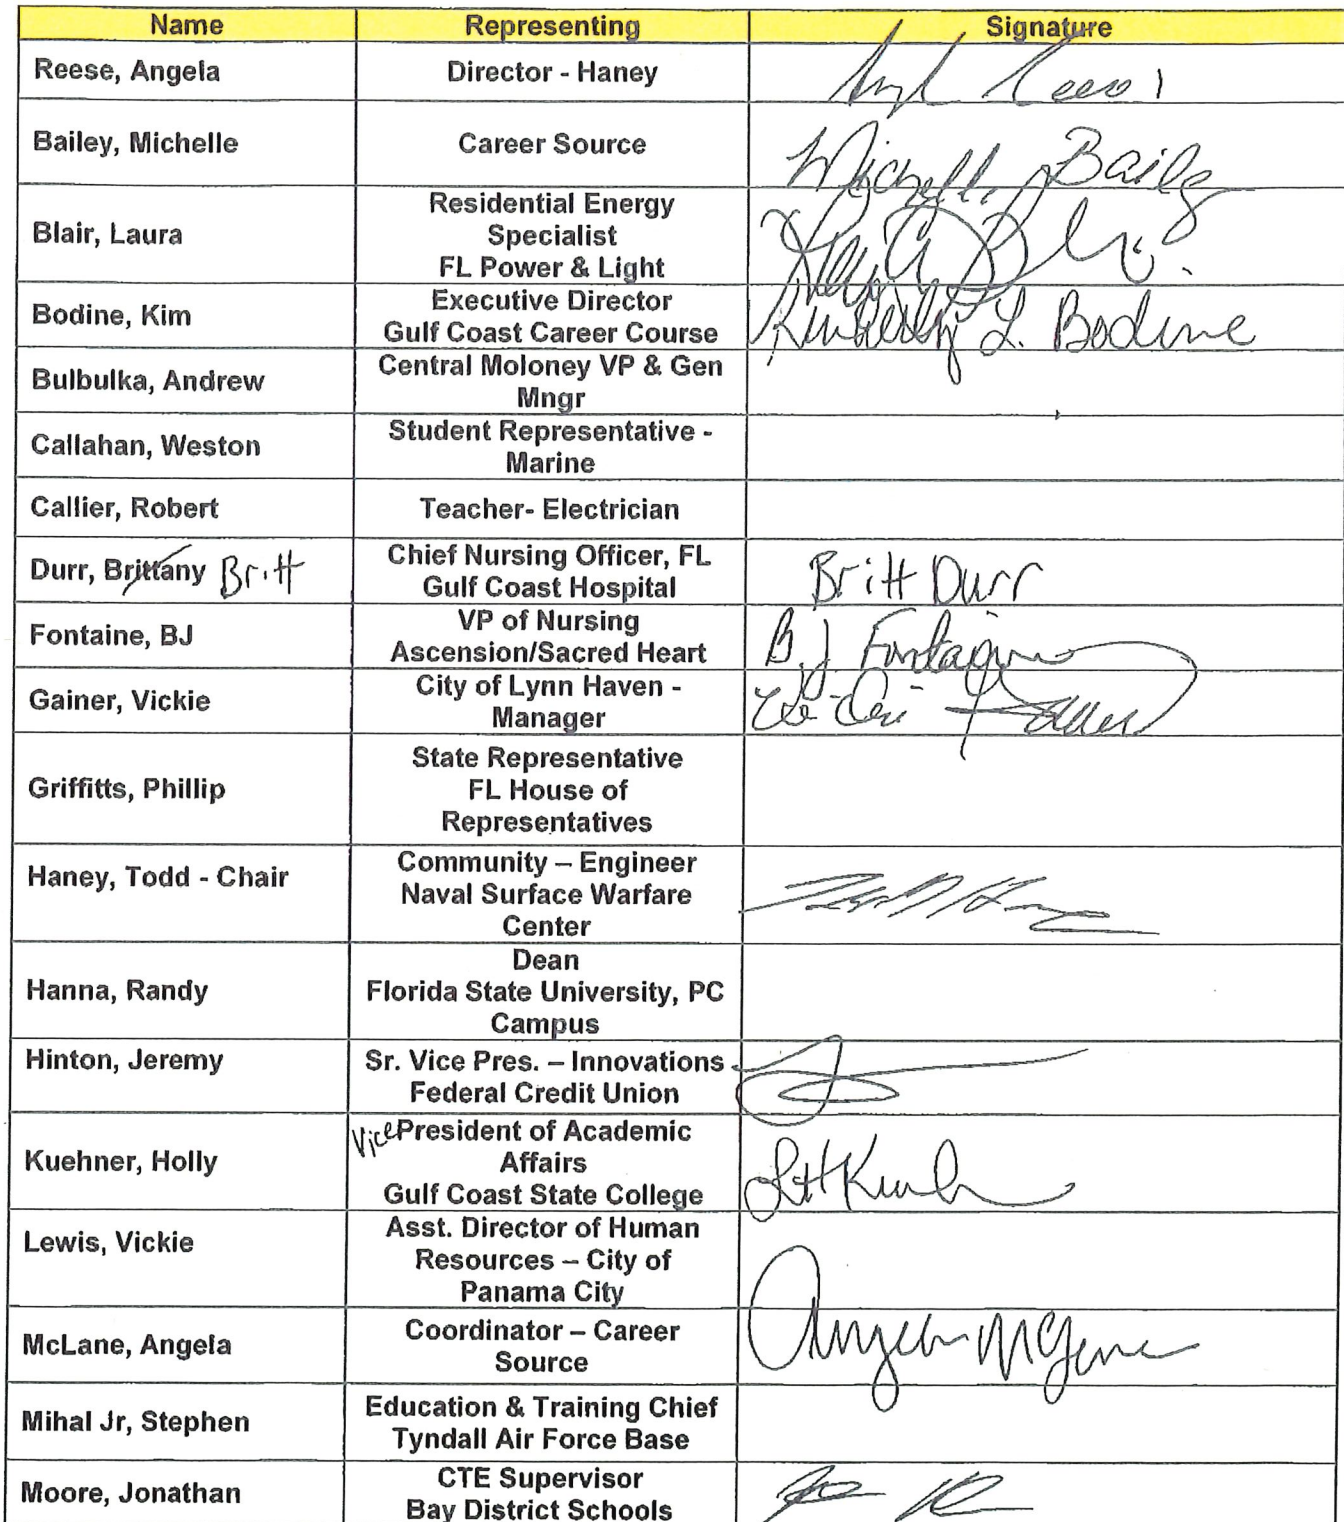 Name Representing Signature
Reese, Angela Director - Haney
Bailey, Michelle Career Source Michelle Bailey
Blair, Laura Residential Energy
Specialist
FL Power & Light
Bodine, Kim Executive Director
Gulf Coast Career Course Kimberly L. Bodine
Bulbulka, Andrew Central Moloney VP & Gen
Mngr
Callahan, Weston Student Representative -
Marine
Callier, Robert Teacher- Electrician
Durr, Brittany Britt Chief Nursing Officer, FL
Gulf Coast Hospital Britt Durr
Fontaine, BJ VP of Nursing
Ascension/Sacred Heart BJ Fontaine
Gainer, Vickie City of Lynn Haven -
Manager
Griffitts, Phillip State Representative
FL House of
Representatives
Haney, Todd - Chair Community – Engineer
Naval Surface Warfare
Center
Hanna, Randy Dean
Florida State University, PC
Campus
Hinton, Jeremy Sr. Vice Pres. – Innovations
Federal Credit Union
Kuehner, Holly Vice President of Academic
Affairs
Gulf Coast State College
Lewis, Vickie Asst. Director of Human
Resources – City of
Panama City
McLane, Angela Coordinator – Career
Source Angela McLane
Mihal Jr, Stephen Education & Training Chief
Tyndall Air Force Base
Moore, Jonathan CTE Supervisor
Bay District Schools